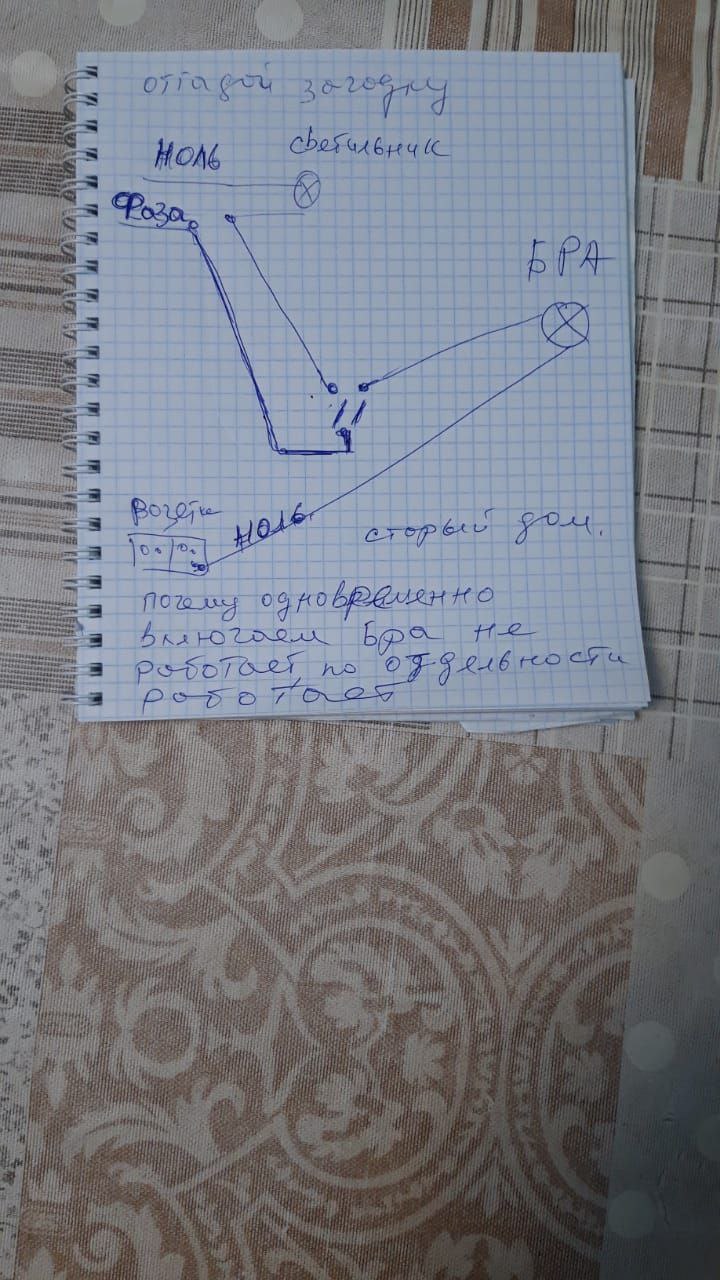 отгадой загодку
ноль светильник
Фаза
БРА
розетка ноль
сторый дом.
почему одновременно
включаем Бра не
роботает по отдельности
роботает